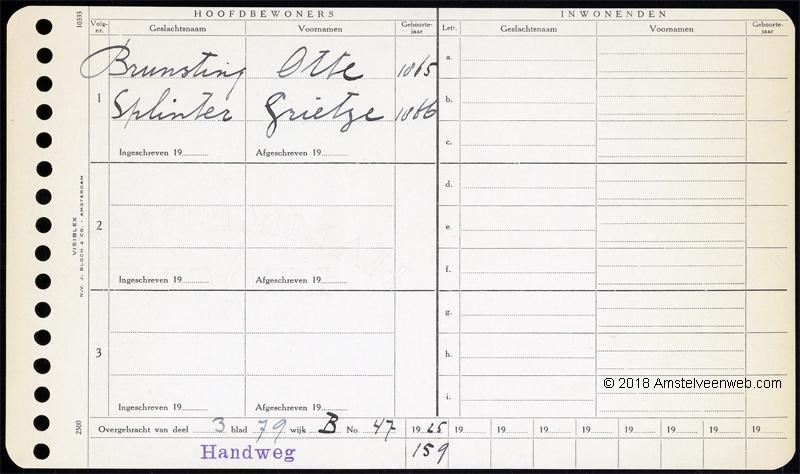 HOOFDBEWONERS INWONENDEN
Volg-nr. Geslachtsnaam Voornamen Geboorte-jaar Lett. Geslachtsnaam Voornamen Geboorte-jaar
10333
1
Brunsting Otte 1865
Splinter Grietze 1866
Ingeschreven 19 Afgeschreven 19
a.
b.
c.
2
Ingeschreven 19 Afgeschreven 19
d.
e.
f.
3
Ingeschreven 19 Afgeschreven 19
g.
h.
i.
VISIBLEX
N.V. J. BLOCH & CO. - AMSTERDAM
2500
© 2018 Amstelveenweb.com
Overgebracht van deel 3 blad 79 wijk B No. 47 1925 19 19 19 19 19 19 19 19
Handweg 159